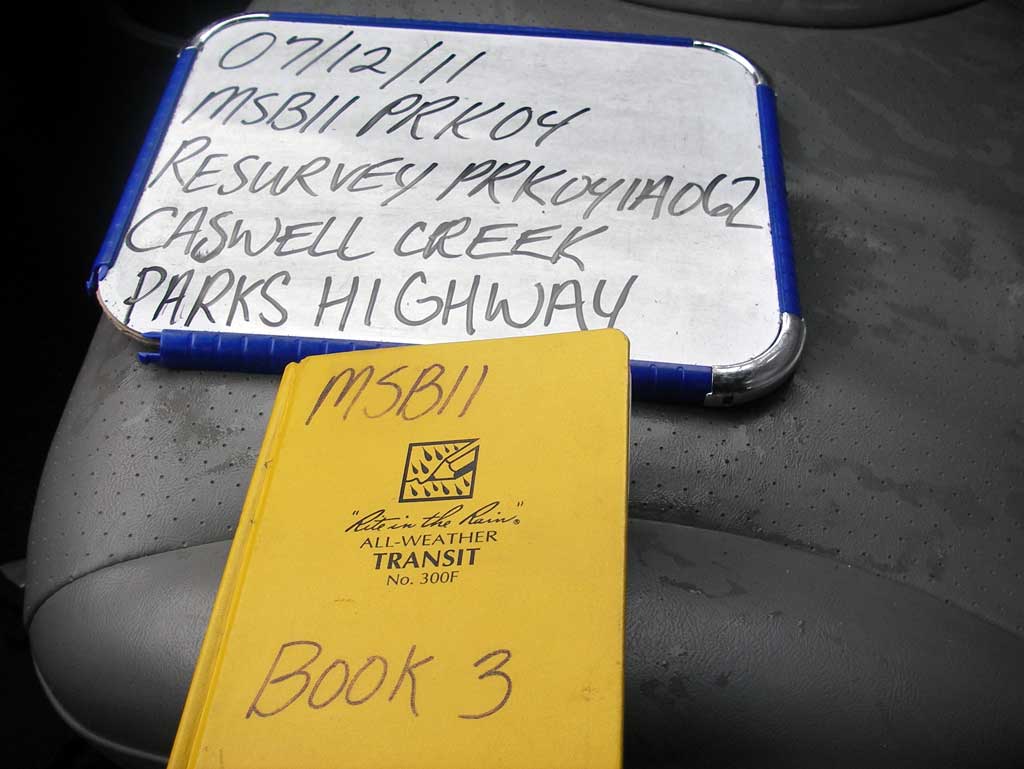 07/12/11
MSB11 PRK04
RESURVEY PRK041A062
CASWELL CREEK
PARKS HIGHWAY
MSB11
"Rite in the Rain"®
ALL-WEATHER
TRANSIT
No. 300F
BOOK 3